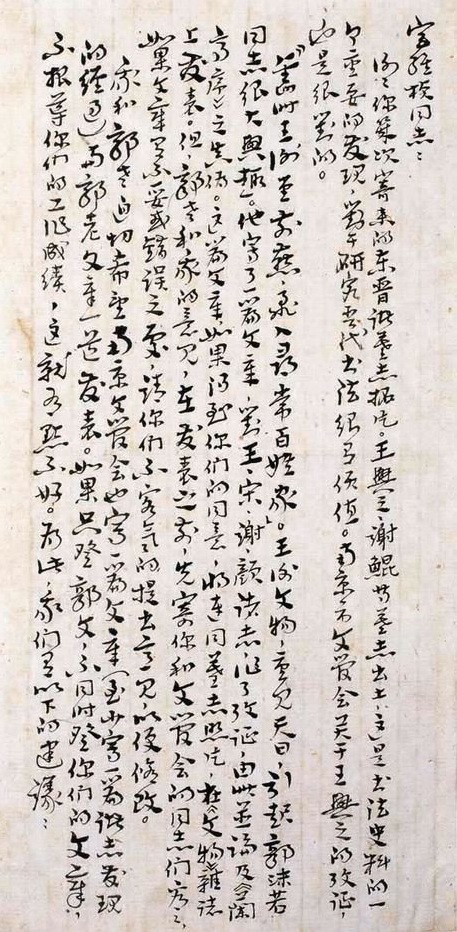 同志：
谢谢你几次寄来的东晋诸墓志拓片。王興之、谢鲲等墓志出土，这是书法史料的一
个重要的发现，对于研究晋代书法很有价值。南京市文管会关于王興之的考证，
也是很对的。
“旧时王谢堂前燕，飞入寻常百姓家”。王谢文物，重见天日，引起郭沫若
同志很大興趣。他写了一篇文章，对王、宋、谢、颜诸志作了考证，由此并论及《兰
亭序》之真伪。这篇文章如果得到你们的同意，将连同墓志照片，在《文物》雜誌
上发表。但郭老和我的意见，在发表之前，先寄你和文管会的同志们看看，
如果文章有不妥或错误之处，请你们不客气的提出意见，以便修改。
我和郭老迫切希望南京文管会也写一篇文章（至少写一篇诸志发现
的经过）与郭老文章一道发表。如果只登郭文，不同时登你们的文章，
不报导你们的工作成绩，这就有點不好。为此，我们有以下的建議：